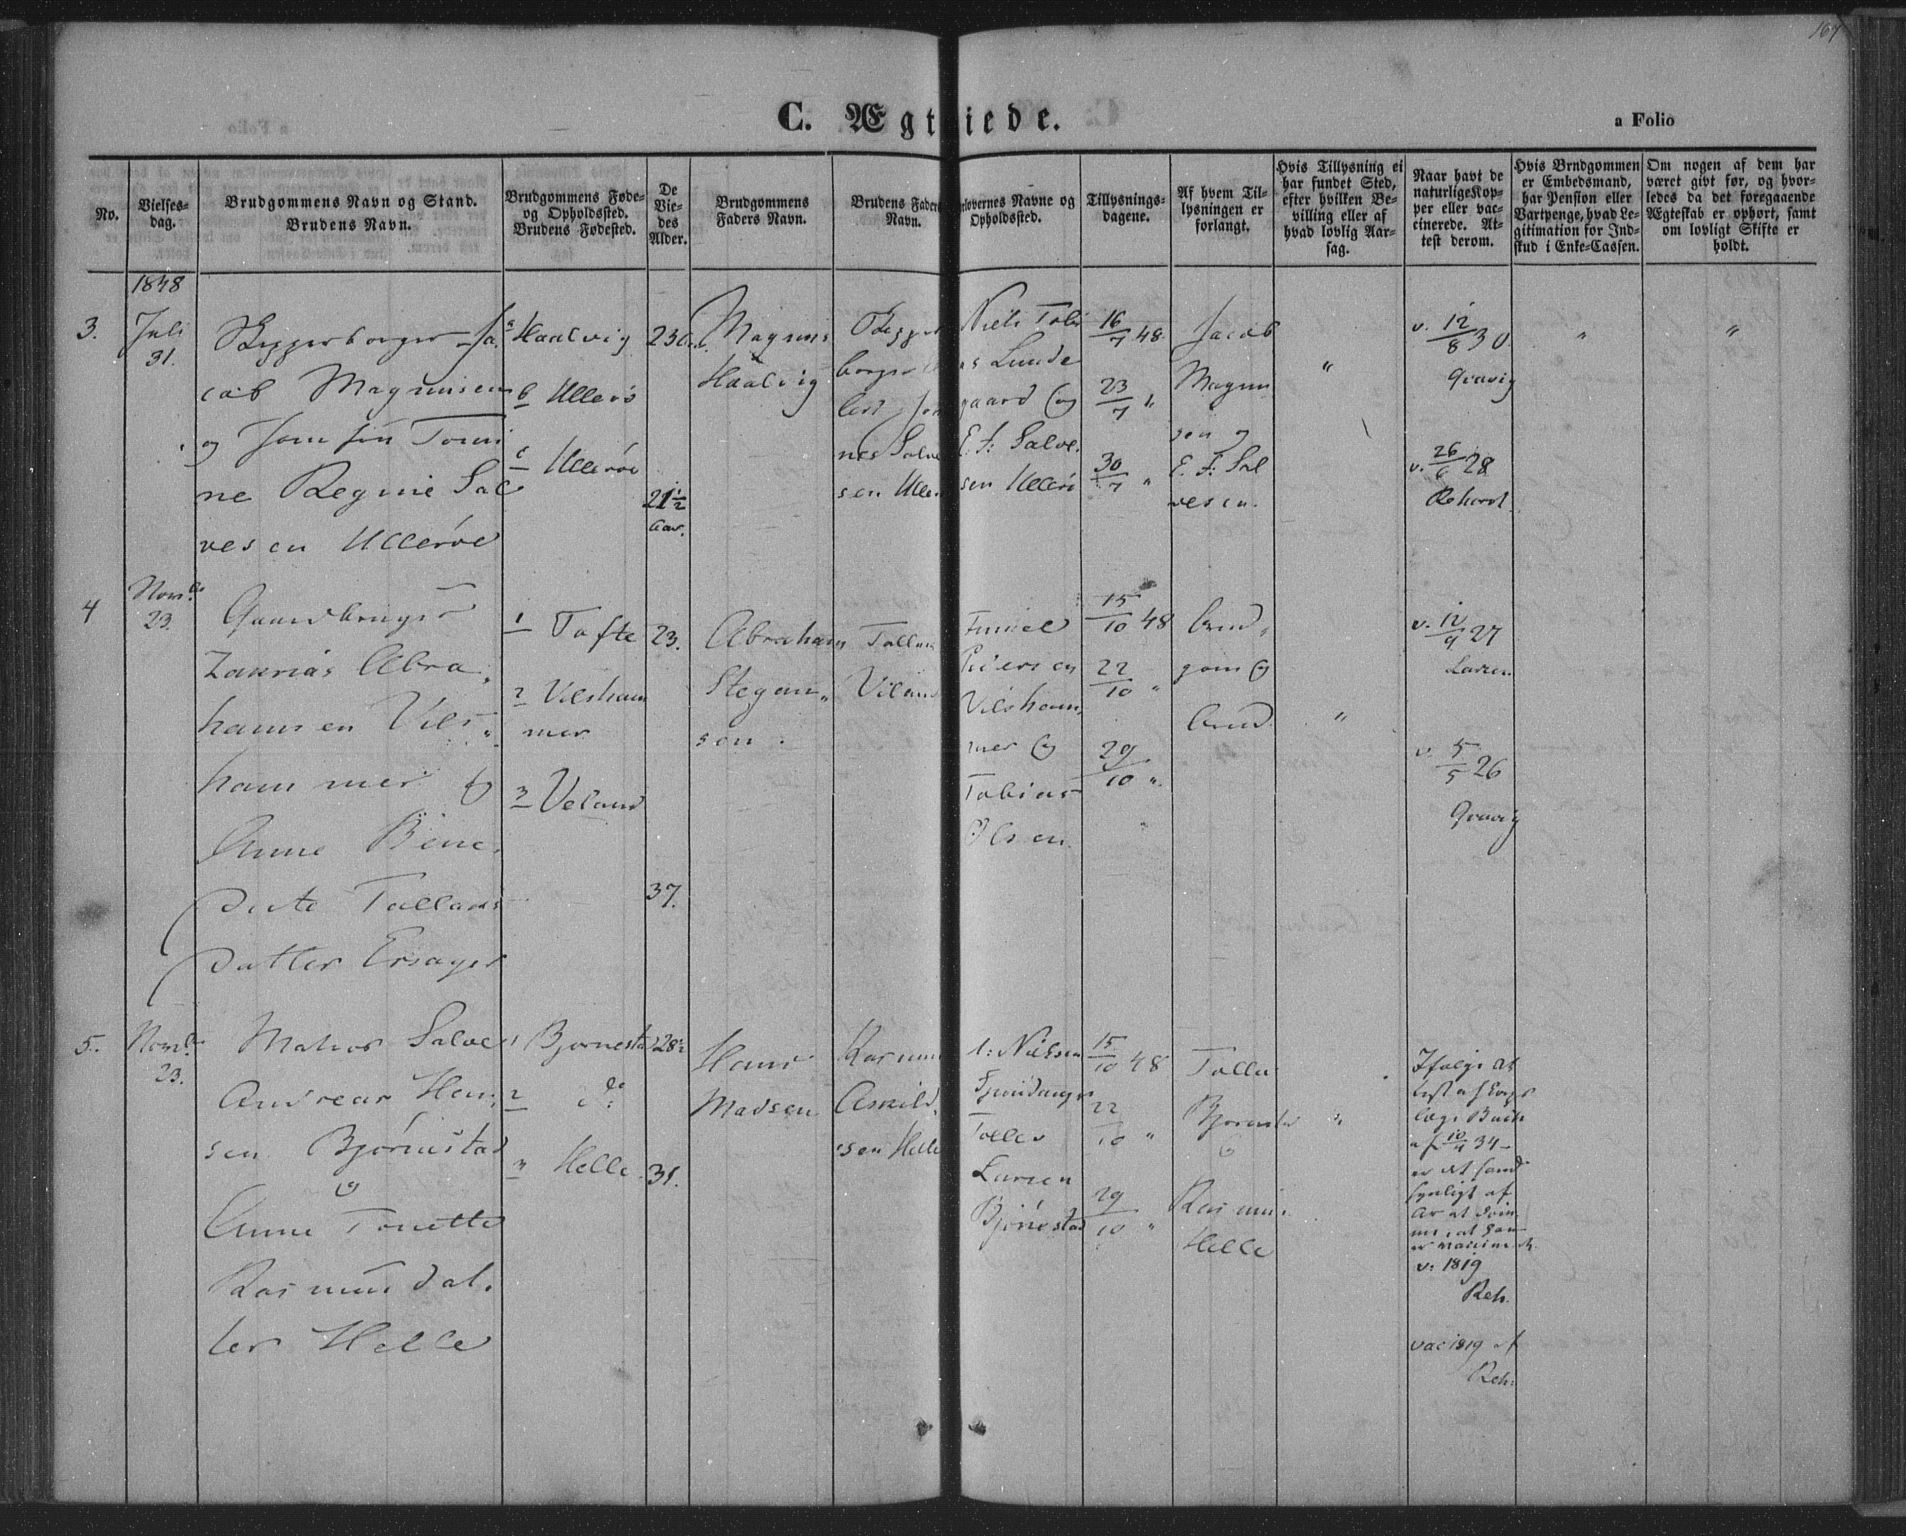 167
C. Ægteviede.
a Folio
No.
Vielses-
dag.
Brudgommens Navn og Stand.
Brudens Navn.
Brudgommens Føde-
og Opholdssted.
Brudens Fødested.
De
Vie-
des
Alder.
Brudgommens
Faders Navn.
Brudens Faders
Navn.
orlovernes Navne og
Opholdssted.
Tillysnings-
dagene.
Af hvem Til-
lysningen er
forlangt.
Hvis Tillysning ei
har fundet Sted,
efter hvilken Be-
villing eller af
hvad lovlig Aar-
sag.
Naar havt de
naturlige Kop-
per eller vac-
cinerede. At-
test derom.
Hvis Brudgommen
er Embedsmand,
har Pension eller
Vartpenge, hvad Le-
gitimation for Ind-
skud i Enke-Cassen.
Om nogen af dem har
været givt før, og hvor-
ledes da det foregaaende
Ægteskab er ophørt, samt
om lovligt Skifte er
holdt.
1848
3.
Juli
31.
Skipperborger Ja
cob Magnusen
og Jomfru Tomi
ne Regine Sal
vesen Ullerøe
a Haalvig
b Ullerø
c Ullerøe
23
21½
Aar.
Magnus
Haalvig
Skipper
borger
nes Salve
sen Uller
Niels Tobi
as Lunde
gaard og
E. F: Salve
sen Ullerø
16/7 48.
23/7 "
30/7 "
Jacob
Magnu
sen og
E. F: Sal
vesen.
"
v. 12/8 30.
Qvavig
v. 26/6 28
Rehordt.
"
"
4
Novbr
23.
Gaardbruger
Zakrias Abra
hamsen Vils
hammer og
Anne Bene
dicte Tallacs
datter Ersager
1 Tofte
2 Vilsham
mer
3 Veland
23.
37.
Abraham
Stegan
sen.
Tallac
Vilan
Pedersen
Vilsham
mer og
Tobias
Olsen.
15/10 48
22/10 "
29/10 "
Brud
gom og
Brud.
"
v. 12/9 27
Larsen
v 5/5 26
Qvavig
5.
Novbr
23.
Mathos Salve
Andreas Han
sen Bjørnestad
og
Anne Tonette
Rasmusdat
ter Helle
1 Bjørnestad
2 do
3 Helle
28½
31.
Hans
Madsen
Rasmu
Askild
sen Helle
A: Nielsen
Tolle
Larsen
Bjørnestad
15/10 48
22/10 "
29/10 "
Tolle
Bjørnesta
og
Rasmu
Helle
"
Ifølge At
test af Corps
læge Buch
af 10/4 34
er det sand
synligt af
Ar at døm
me, at han
er vaccineret
v: 1819
Reh.
vac 1819 af
Reh: